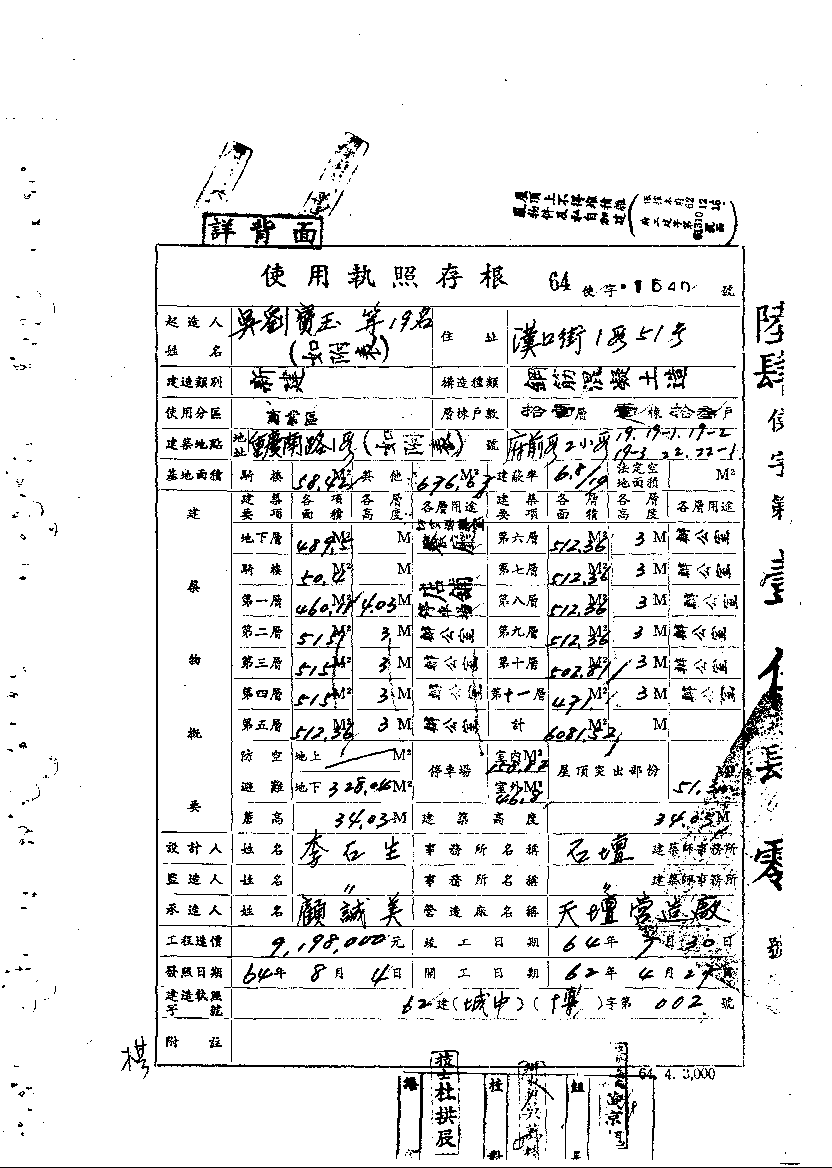 屋頂上不得堆積雜
物件及私自加建
詳背面
使用執照存根 64 使字 1540 號
起造人姓名 吳劉寶玉 等19名 (如附表) 住址 漢口街1段51号
建造類別 新建 構造種類 鋼筋混凝土造
使用分區 商業區 層棟戶數 拾壹層 壹棟 拾叁戶
建築地點 地址 重慶南路1段(如附表)號 府前段2小段 19. 19-1. 19-2 19-3. 22. 22-1
基地面積 騎樓 58.42 M² 其他 676.63 M² 建蔽率 6.8/10 法定空地面積 M²
建築物概要 建築要項 各項面積 各層高度 各層用途 建築要項 各層面積 各層高度 各層用途
地下層 489.5 M² M 餐廳 第六層 512.36 M² 3 M 辦公室
騎樓 50.4 M² 第七層 512.36 M² 3 M 辦公室
第一層 460.18 M² 4.03 M 店鋪 停車場 第八層 512.36 M² 3 M 辦公室
第二層 515 M² 3 M 辦公室 第九層 512.36 M² 3 M 辦公室
第三層 515 M² 3 M 辦公室 第十層 502.81 M² 3 M 辦公室
第四層 515 M² 3 M 辦公室 第十一層 471.1 M² 3 M 辦公室
第五層 512.36 M² 3 M 辦公室 計 6081.52 M² M
防空避難 地上 M² 停車場 室內 M² 158.82 屋頂突出部份
地下 328.04 M² 室外 M² 46.8 M²
簷高 34.03 M 建築高度 34.03 M
設計人 姓名 李石生 事務所名稱 石壇 建築師事務所
監造人 姓名 〃 事務所名稱 〃 建築師事務所
承造人 姓名 顧誠美 營造廠名稱 天壇營造廠
工程造價 9,198,000元 竣工日期 64年 月30日
發照日期 64年 8月 4日 開工日期 62年 4月 27日
建造執照字號 62建(城中)( )字第 002 號
附註
64. 4. 3,000
技士杜拱辰
陸肆使字第壹仟 肆零號